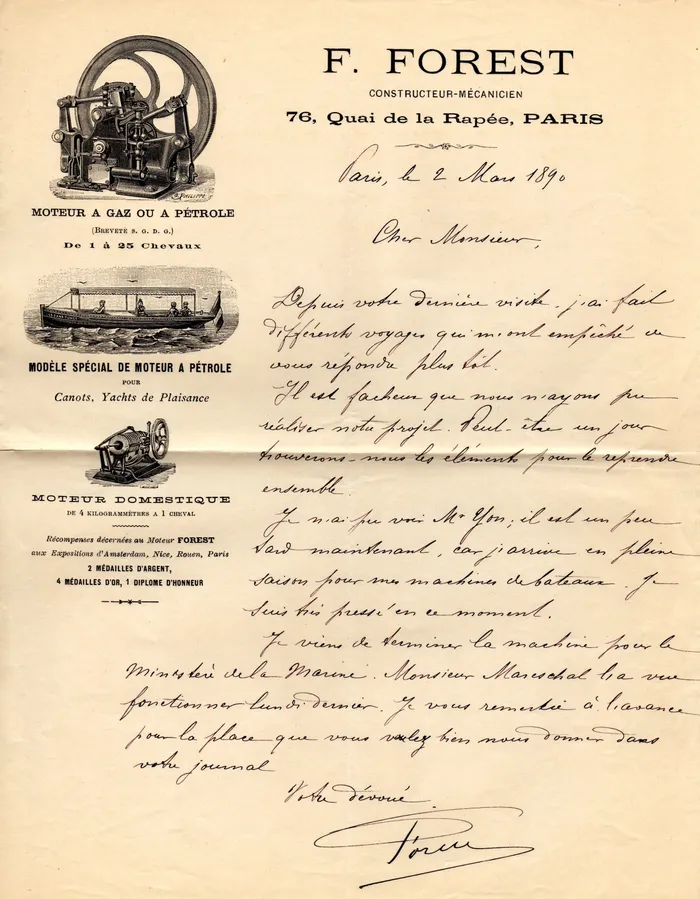 F. FOREST
CONSTRUCTEUR-MÉCANICIEN
76, Quai de la Rapée, PARIS
MOTEUR A GAZ OU A PÉTROLE
(BREVETÉ S. G. D. G.)
De 1 à 25 Chevaux
MODÈLE SPÉCIAL DE MOTEUR A PÉTROLE
POUR
Canots, Yachts de Plaisance
MOTEUR DOMESTIQUE
DE 4 KILOGRAMMÈTRES A 1 CHEVAL
Récompenses décernées au Moteur FOREST
aux Expositions d'Amsterdam, Nice, Rouen, Paris
2 MÉDAILLES D'ARGENT,
4 MÉDAILLES D'OR, 1 DIPLOME D'HONNEUR
Paris, le 2 Mars 1890
Cher Monsieur,
Depuis votre dernière visite, j'ai fait
différents voyages qui m'ont empêché de
vous répondre plus tôt.
Il est facheux que nous n'ayons pu
réaliser notre projet. Peut-être un jour
trouverons-nous les éléments pour le reprendre
ensemble.
Je n'ai pu voir Mr Yon; il est un peu
tard maintenant, car j'arrive en pleine
saison pour mes machines de bateaux. Je
suis très pressé en ce moment.
Je viens de terminer la machine pour le
Ministère de la Marine. Monsieur Mareschal l'a vue
fonctionner lundi dernier. Je vous remercie à l'avance
pour la place que vous voulez bien nous donner dans
votre journal
Votre dévoué
Forest